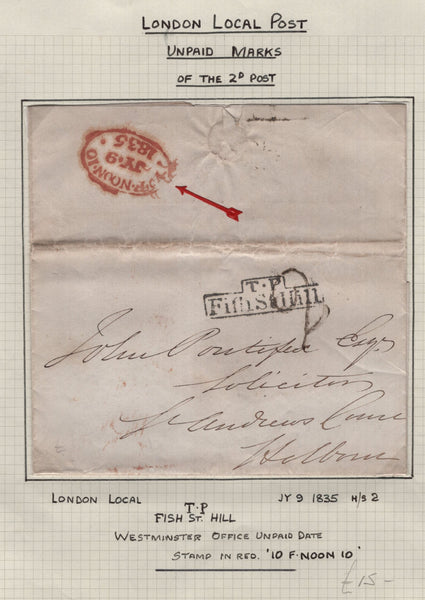 LONDON LOCAL POST
UNPAID MARKS
OF THE 2D POST
10·F·NOON·10
JY·9
1835
T·P
Fish St Hill
2
John Pontifex Esqr
Solicitor
St Andrews Court
Holborn
LONDON LOCAL JY 9 1835 H/S 2
T·P
FISH ST. HILL
WESTMINSTER OFFICE UNPAID DATE
STAMP IN RED. '10 F·NOON 10'
£15-